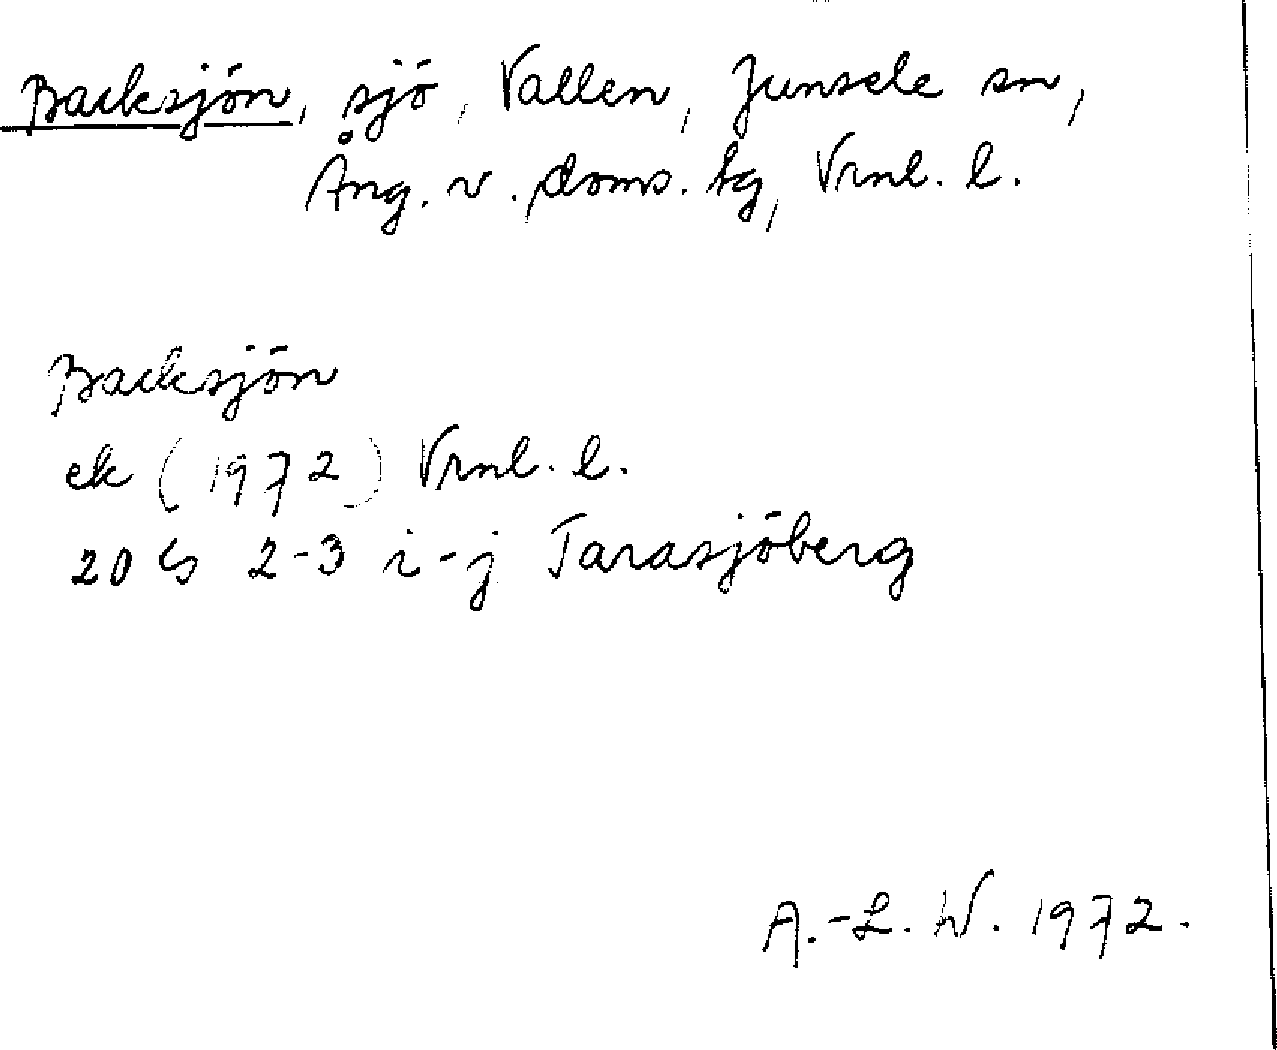 Backsjön, sjö, Vallen, Junsele sn,
Ång. v. doms. tg, Vrnl. l.
Backsjön
ek (1972) Vrnl. l.
20 G 2-3 i-j Tarasjöberg
A.-L. W. 1972.